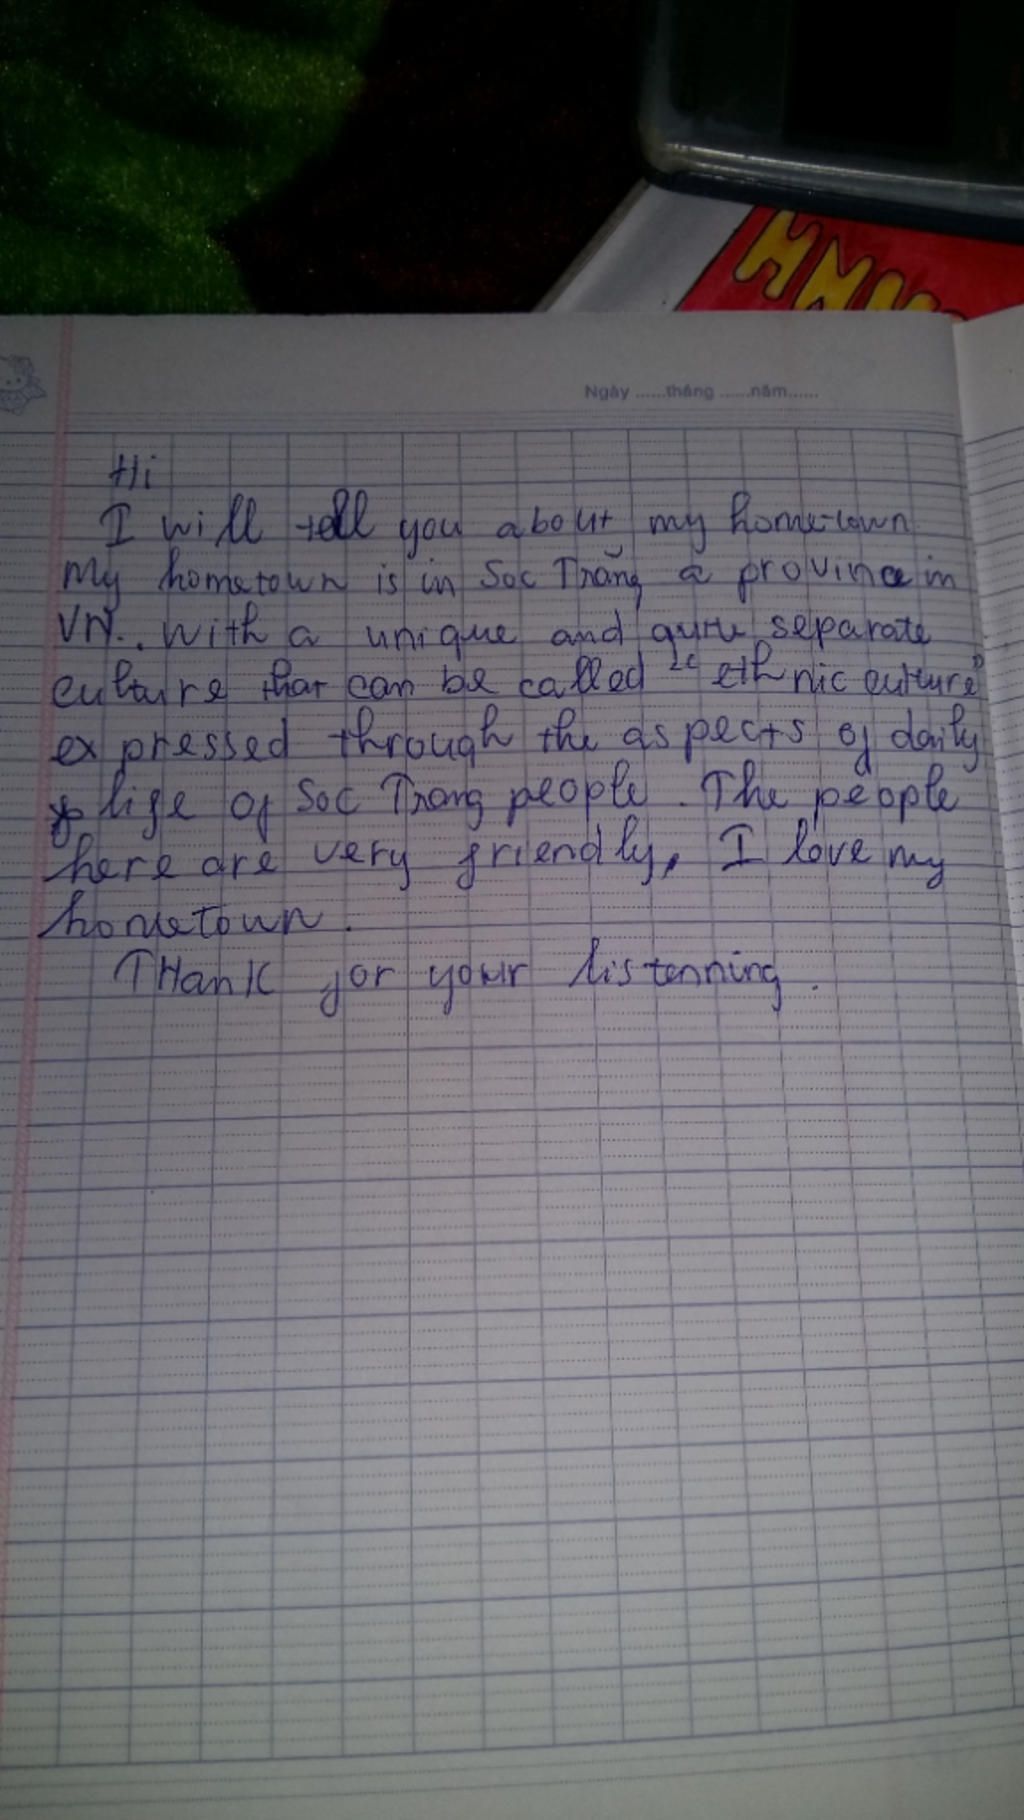 HMM
Ngày ......tháng ......năm......
Hi
I will tell you about my hometown
My hometown is in Soc Trăng a province in
VN. With a unique and quite separate
culture that can be called “ethnic culture”
expressed through the aspects of daily
life of Soc Trang people. The people
here are very friendly, I love my
hometown.
THank for your listenning.